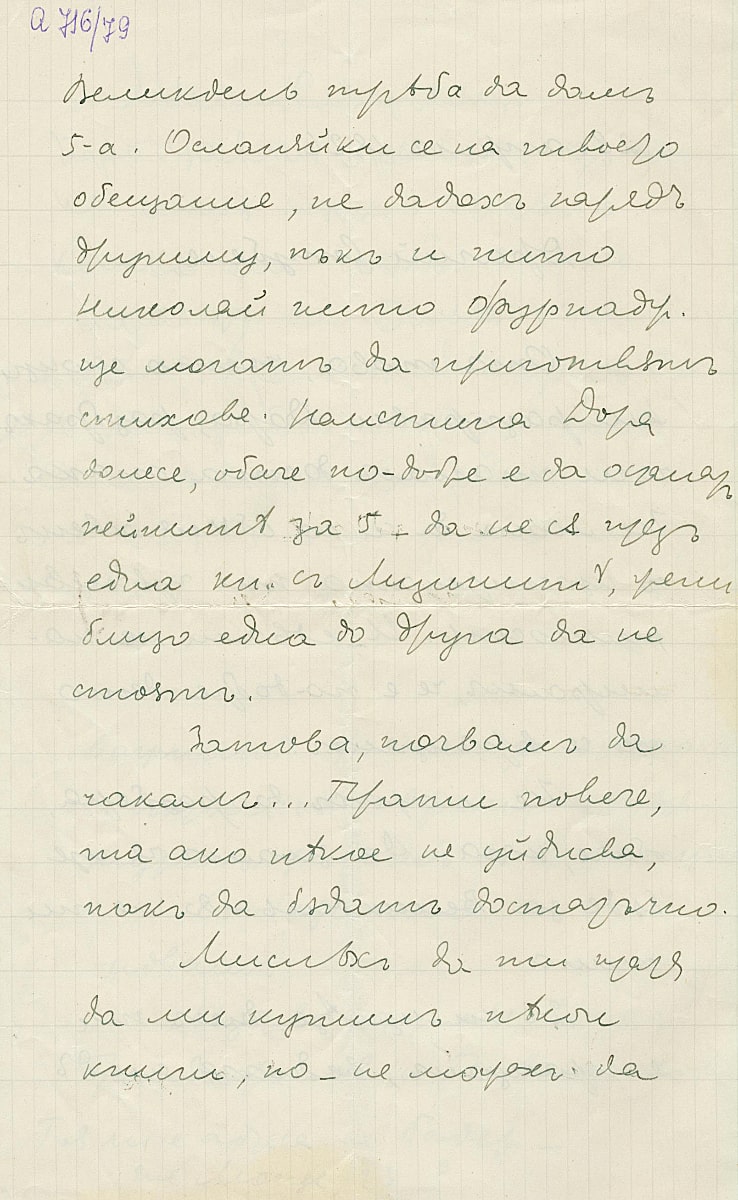 А 716/79
Великдень трѣба да дамъ
5-а. Осланяйки се на твоето
обещание, не дадохъ нарядъ
другиму, пъкъ и нито
Николай нито Фурнадж.
ще могатъ да приготвятъ
стихове. Наистина Дора
донесе, обаче по-добре е да останатъ
нейнитѣ за 5 – да не сѫ презъ
една кн. съ Лизинитѣ,
близо една до друга да не
стоятъ.
Затова, почвамъ да
чакамъ... Прати повече,
та ако нѣкое не уйдисва,
пакъ да бѫдатъ достатъчно.
Мислѣхъ да ти пратя
да ми купишъ нѣкои
книги, но – не можехъ да